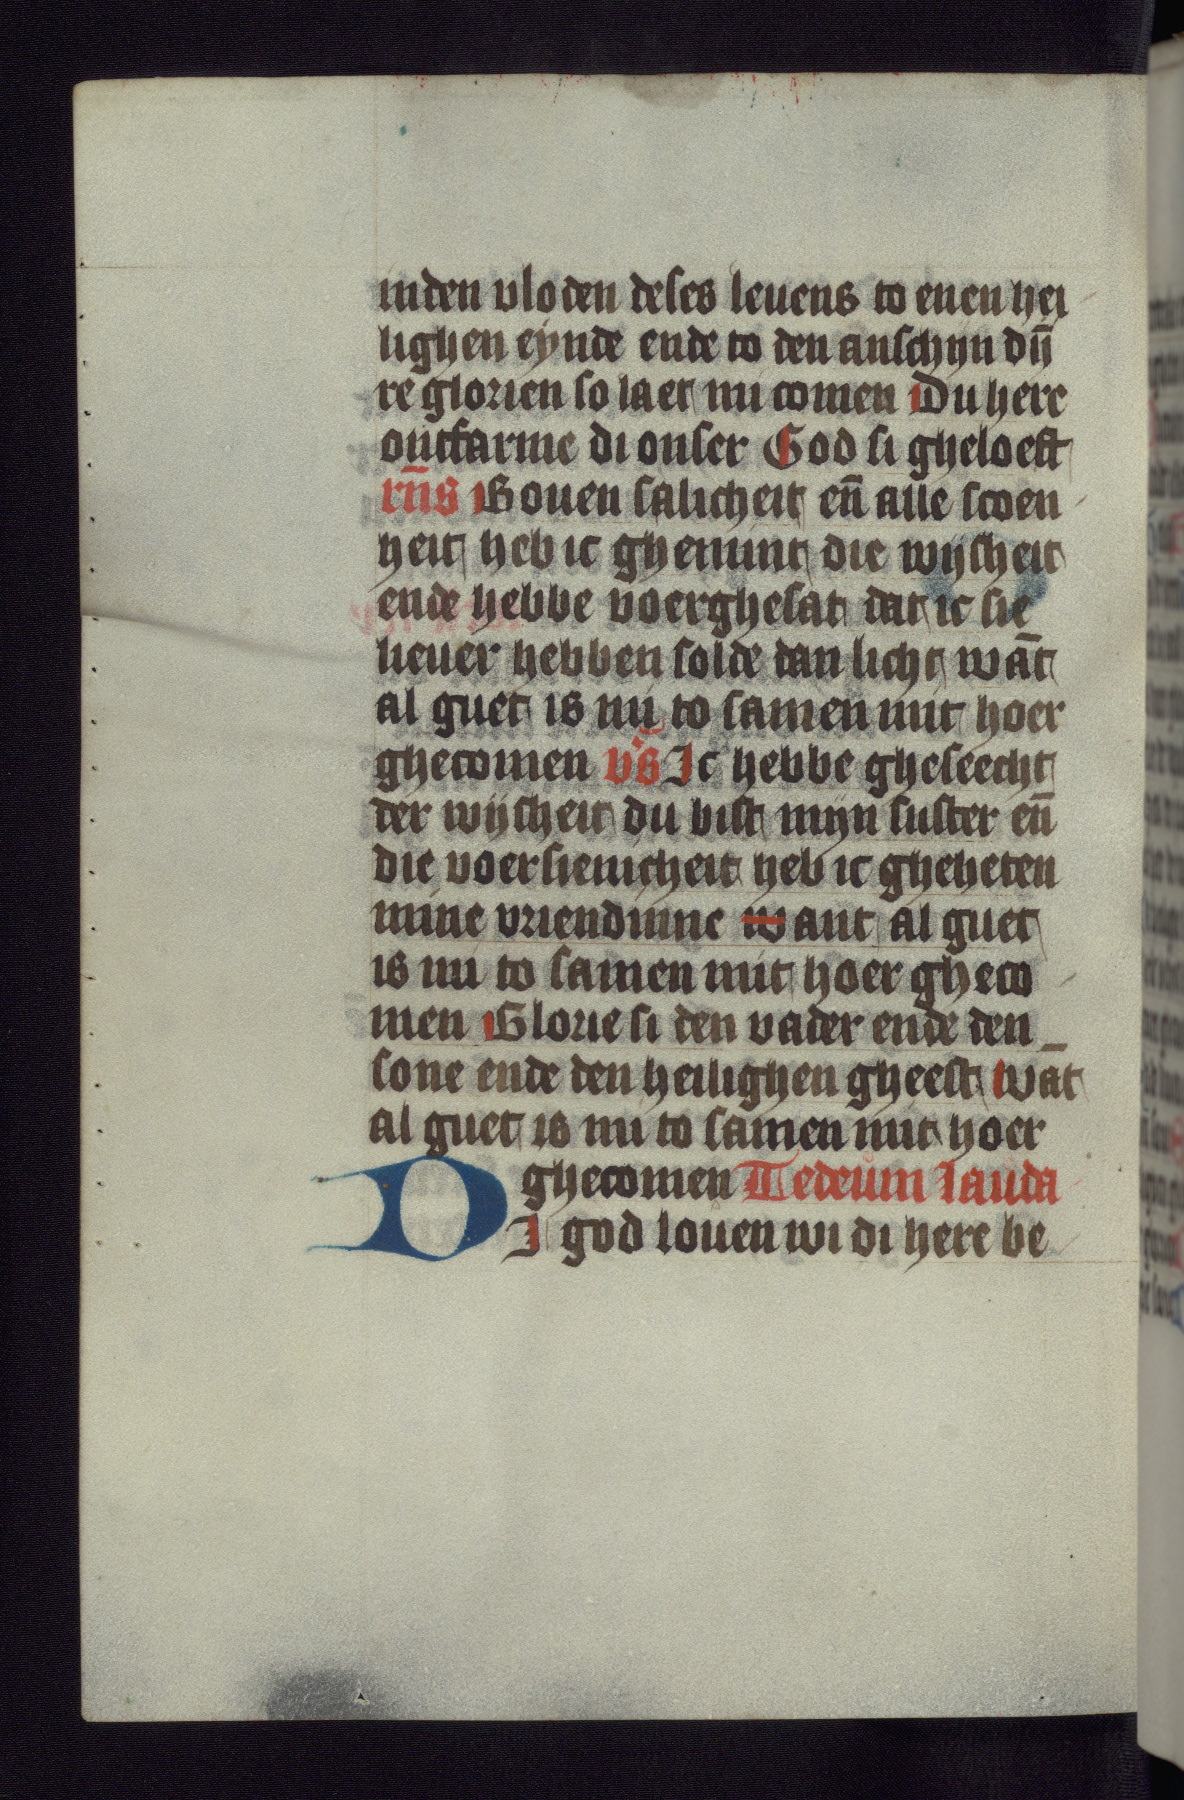 inden vloden deses leuens to enen hei
lighen eynde ende to den anschijn dijn̄
re glorien so laet nu comen Du here
ontfarme di onser God si gheloeft
rn̄s Bouen salicheit en̄ alle scoen
heit heb ic ghemint die wijsheit
ende hebbe voerghesat dat ic sie
lieuer hebben solde dan licht wāt
al guet is nu to samen mit hoer
ghecomen v̓s Ic hebbe gheseecht
der wijsheit du bist mijn suster en̄
die voersienicheit heb ic gheheten
mine vriendinne want al guet
is nu to samen mit hoer gheco
men Glorie si den vader ende den
sone ende den heilighen gheest wāt
al guet is nu to samen mit hoer
ghecomen Tedeum lauda
DI god louen wi di here be